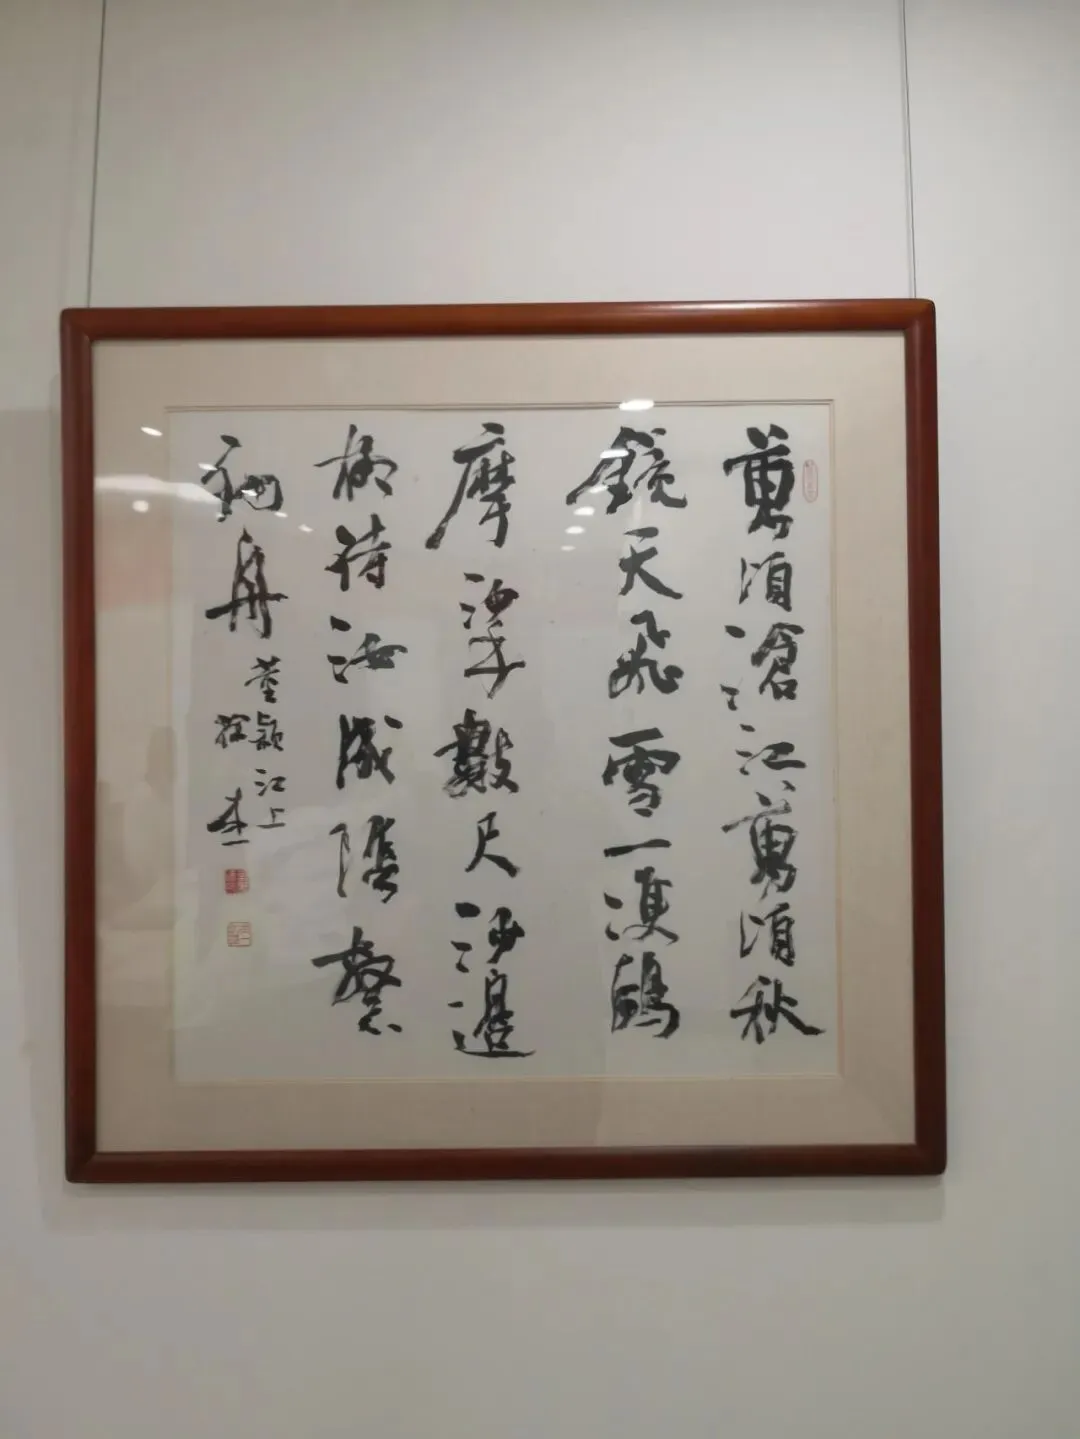 萬頃滄江萬頃秋
鏡天飛雪一雙鷗
摩挲數尺沙邊
柳待汝成陰繫
釣舟
董穎江上